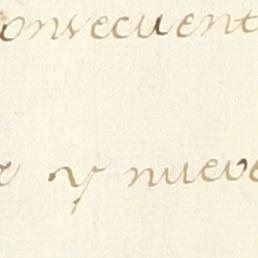 onsecuent
y nueve